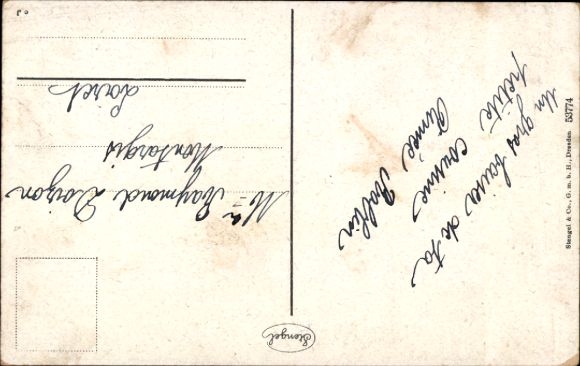 Un gros baiser de ta
petite cousine
Aimée Rollin
Mr Raymond Doizon
Montargis
Loiret
Stengel
Stengel & Co., G. m. b. H., Dresden 53774